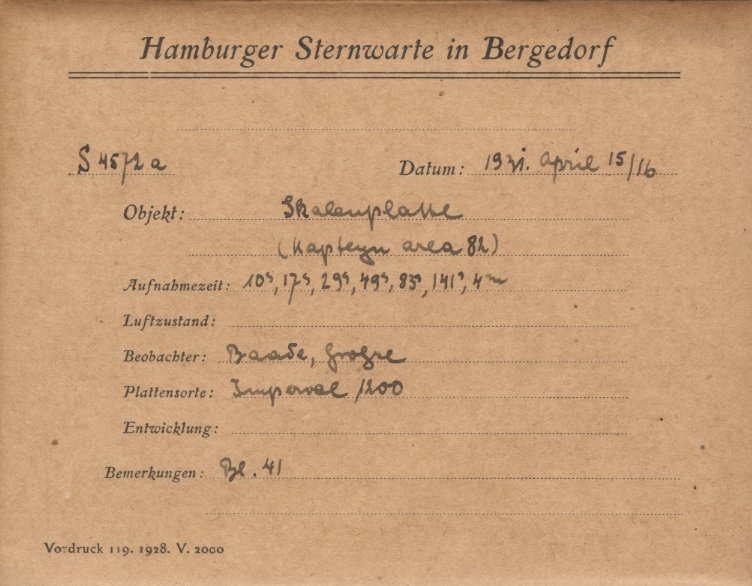 Hamburger Sternwarte in Bergedorf
S 4572 a Datum: 1931. April 15/16
Objekt: Skalenplatte
(Kapteyn area 82)
Aufnahmezeit: 10s, 17s, 29s, 49s, 83s, 141s, 4m
Luftzustand:
Beobachter: Baade,
Plattensorte: Imperial 1200
Entwicklung:
Bemerkungen: Bl. 41
Vordruck 119. 1928. V. 2000